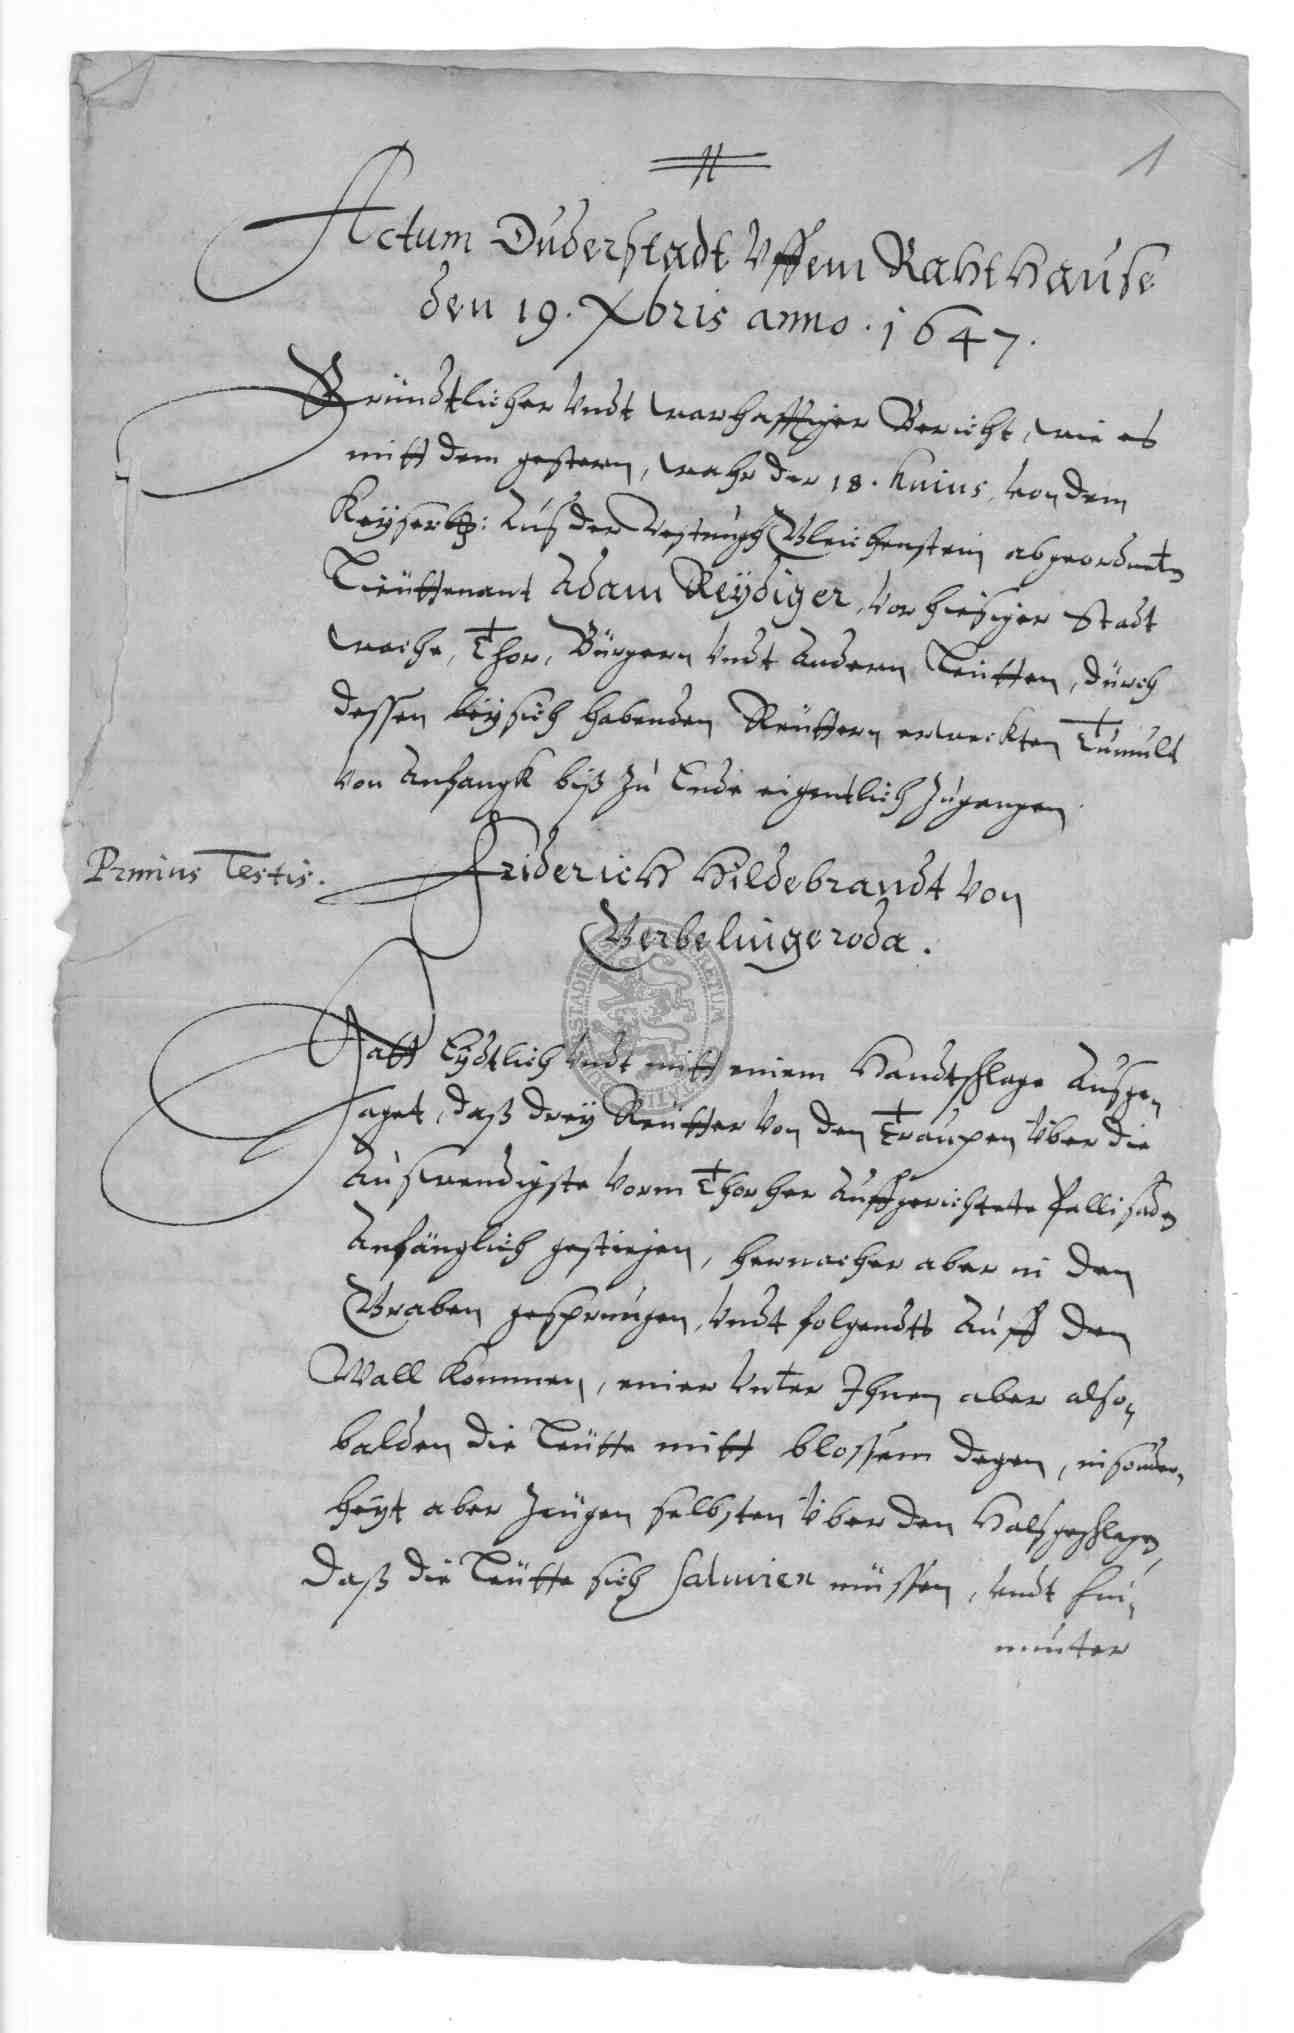 1
Actum Duderstadt Uffem Rahthause
den 19. Xbris anno. 1647.
Gründtlicher Undt warhafftiger Bericht, wie es
mitt dem gestern, wahr der 18. huius, von dem
Keyserl: Aus der Vestungh Gleichenstein abgeordnetn
Leuttenant Adam Reydiger, Vor hiesiger Stadt
wache, Thor, Bürgern Undt Andern Leutten, dürch
dessen bey sich habenden Reuttern erweckten Tumult
Von Anfangk biß zu Ende eigentlich zugangen
Primus Testis.
Friderich Hildebrandt Von
Gerbelingeroda.
Hatt Eydtlich Undt mitt einem Handtschlage Ausge-
saget, daß drey Reutter Von den Traupen Über die
Auswendigste Vorm Thor her Auffgerichtete Pallisadn
Anfänglich gestiegen, hernacher aber in den
Graben gesprungen, Undt folgendts Auff den
Wall kommen, einer Unter Ihnen aber also-
balden die Leutte mitt blossem degen, insonder-
heyt aber Zeugen selbsten Über den Hals geschlagen,
daß die Leutte sich salviren müssen, Undt hin-
nunter